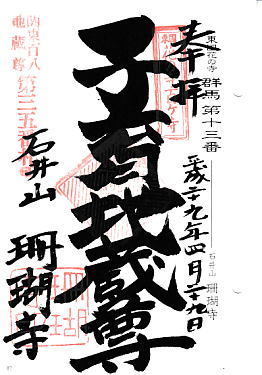 奉拝
東国花の寺
群馬第十三番
平成二十九年四月二十九日
石井山 珊瑚寺
子育地蔵尊
関東百八
地蔵尊
石井山
珊瑚寺